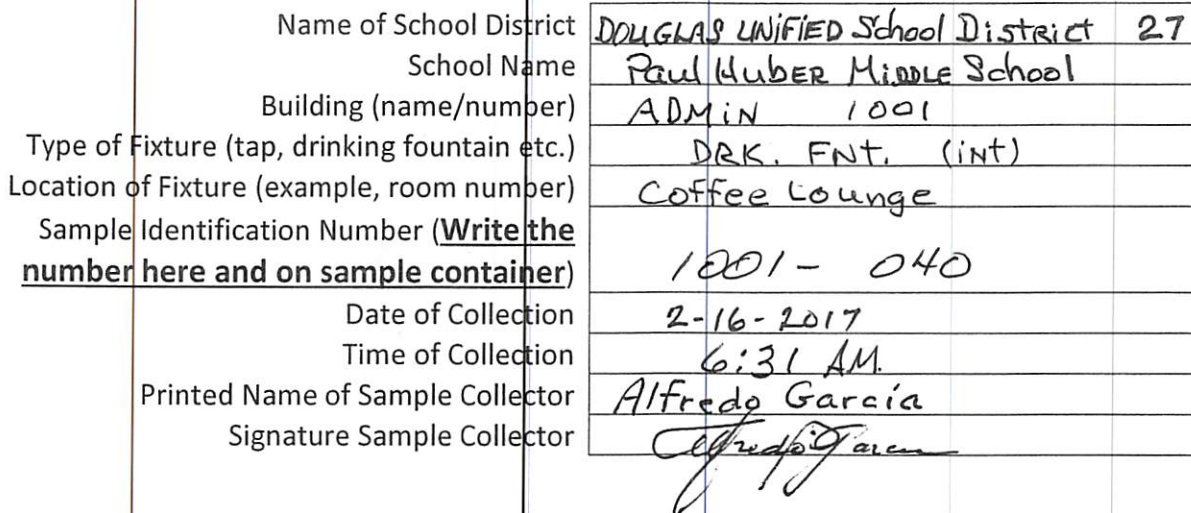 Name of School District DOUGLAS UNIFIED School District 27
School Name Paul Huber Middle School
Building (name/number) ADMIN 1001
Type of Fixture (tap, drinking fountain etc.) DRK. FNT. (iNt)
Location of Fixture (example, room number) Coffee Lounge
Sample Identification Number (Write the
number here and on sample container) 1001- 040
Date of Collection 2-16-2017
Time of Collection 6:31 AM.
Printed Name of Sample Collector Alfredo Garcia
Signature Sample Collector Alfredo Garcia